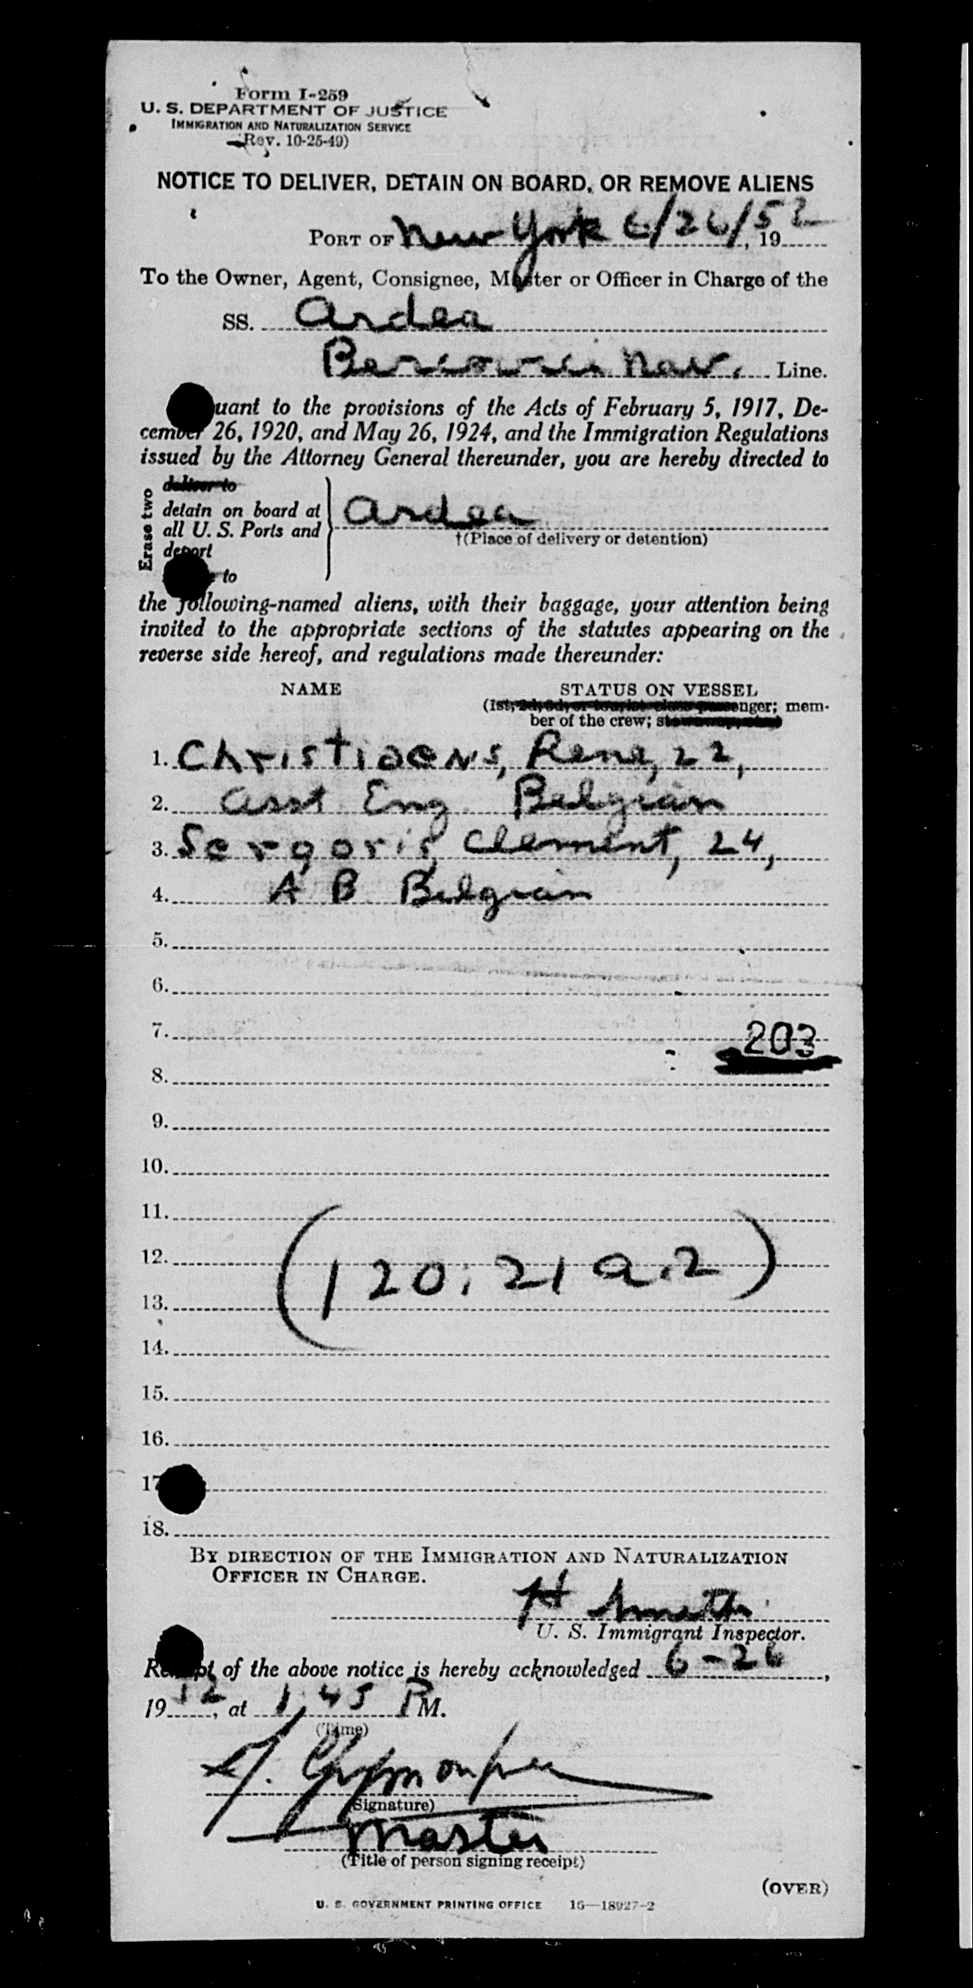 Form I-259
U. S. DEPARTMENT OF JUSTICE
IMMIGRATION AND NATURALIZATION SERVICE
(Rev. 10-25-49)
NOTICE TO DELIVER, DETAIN ON BOARD, OR REMOVE ALIENS
PORT OF New York 6/26/52, 19
To the Owner, Agent, Consignee, Master or Officer in Charge of the
SS. Ardea
Nav. Line.
uant to the provisions of the Acts of February 5, 1917, De-
cember 26, 1920, and May 26, 1924, and the Immigration Regulations
issued by the Attorney General thereunder, you are hereby directed to
Erase two
deliver to
detain on board at
all U. S. Ports and
deport
to
Ardea
†(Place of delivery or detention)
the following-named aliens, with their baggage, your attention being
invited to the appropriate sections of the statutes appearing on the
reverse side hereof, and regulations made thereunder:
NAME STATUS ON VESSEL
(1st, 2d, 3d, or tourist class passenger; mem-
ber of the crew;
1. Christiaens, Rene, 22,
2. Asst Eng Belgian
3. Sergoris, Clement, 24,
4. A B Belgian
5.
6.
7. 203
8.
9.
10.
11.
12. (120.21 a.2)
13.
14.
15.
16.
17
18.
BY DIRECTION OF THE IMMIGRATION AND NATURALIZATION
OFFICER IN CHARGE.
H Smith
U. S. Immigrant Inspector.
Receipt of the above notice is hereby acknowledged 6-26,
1952, at 1,45 PM.
(Time)
(Signature)
Master
(Title of person signing receipt)
(OVER)
U. S. GOVERNMENT PRINTING OFFICE 16—18927-2